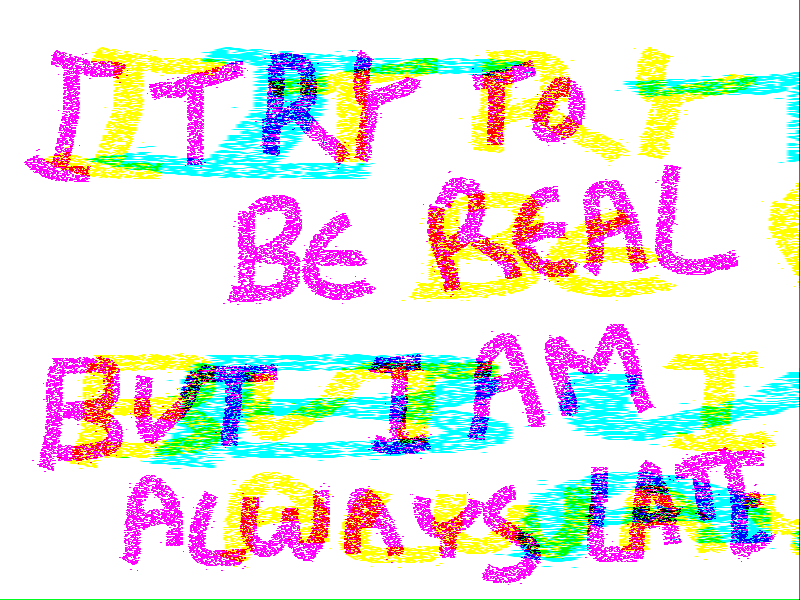 I TRY TO
BE REAL
BUT I AM
ALWAYS LATE